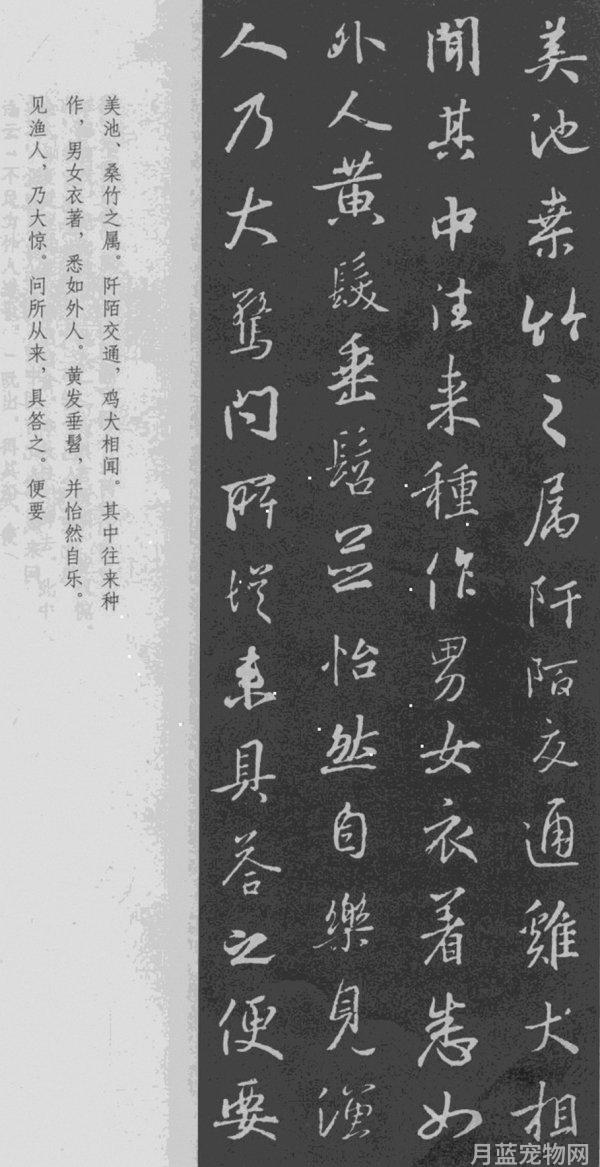 美池桒竹之属阡陌交通雞犬相
聞其中往来種作男女衣着悉如
外人黄髮垂髫並怡然自樂見漁
人乃大驚問所從来具答之便要
美池、桑竹之属。阡陌交通，鸡犬相闻。其中往来种
作，男女衣著，悉如外人。黄发垂髫，并怡然自乐。
见渔人，乃大惊。问所从来，具答之。便要
月蓝宠物网